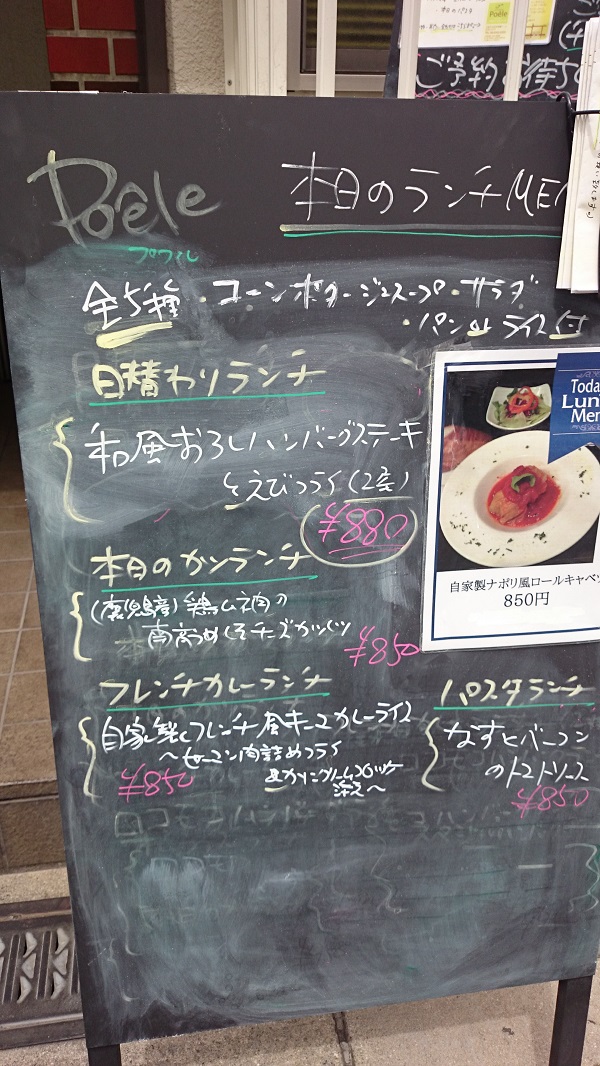 Poêle
ご予約お待ち
Poêle
本日のランチMEN
プワール
全5種・コーンポタージュスープ・サラダ
・パンorライス付
日替わりランチ
和風おろしハンバーグステーキ
とえびフライ(2尾)
¥880
本日のカツランチ
(鹿児島産)鶏ムネ肉の
南高うめしそチーズカツレツ
¥850
フレンチカレーランチ
自家製フレンチ風キーマカレーライス
〜ピーマン肉詰めフライ
&カニクリームコロッケ
添え〜
¥850
パスタランチ
なすとベーコン
のトマトソース
¥850
Today
Lunch
Menu
自家製ナポリ風ロールキャベツ
850円